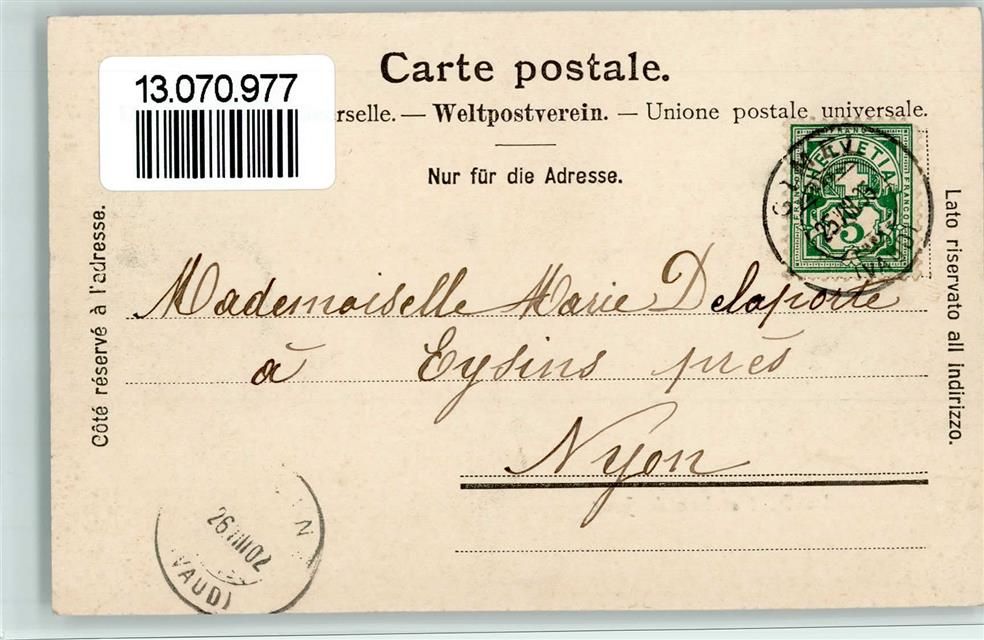 13.070.977
Carte postale.
rselle. — Weltpostverein. — Unione postale universale.
Nur für die Adresse.
Côté réservé à l'adresse.
Lato riservato all indirizzo.
FRANCO HELVETIA FRANCO
5
GIMEL
(VAUD)
Mademoiselle Marie Delaporte
à Eysins près
Nyon
N
26.III.02
(VAUD)